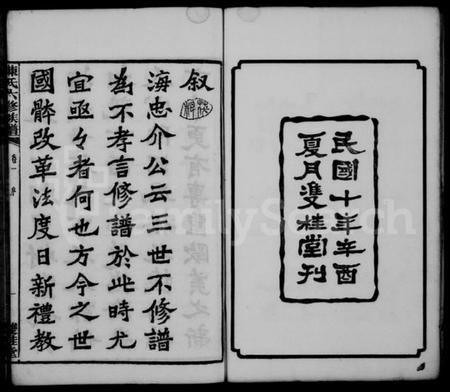 民國十年辛酉
夏月雙桂堂刊
叙
海忠介公云三世不修譜
為不孝言修譜於此時尤
宜亟々者何也方今之世
國體改革法度日新禮教
氏六修族譜
卷一
雙桂堂
FamilySearch